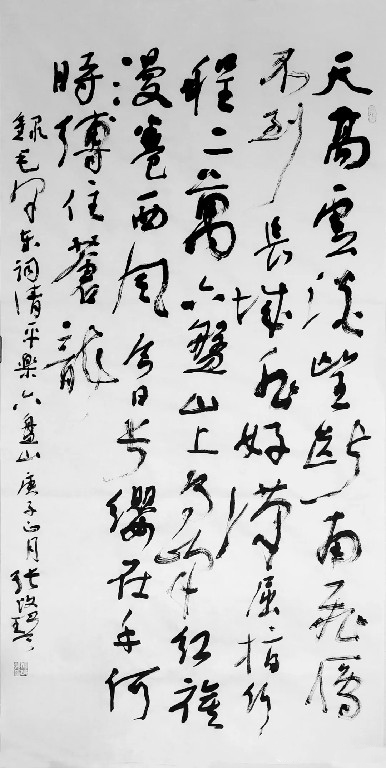 天高雲淡望斷南飛雁
不到長城非好漢屈指行
程二萬六盤山上高峰紅旗
漫卷西風今日長纓在手何
時縛住蒼龍
錄毛澤東詞清平樂六盤山庚子正月張改琴